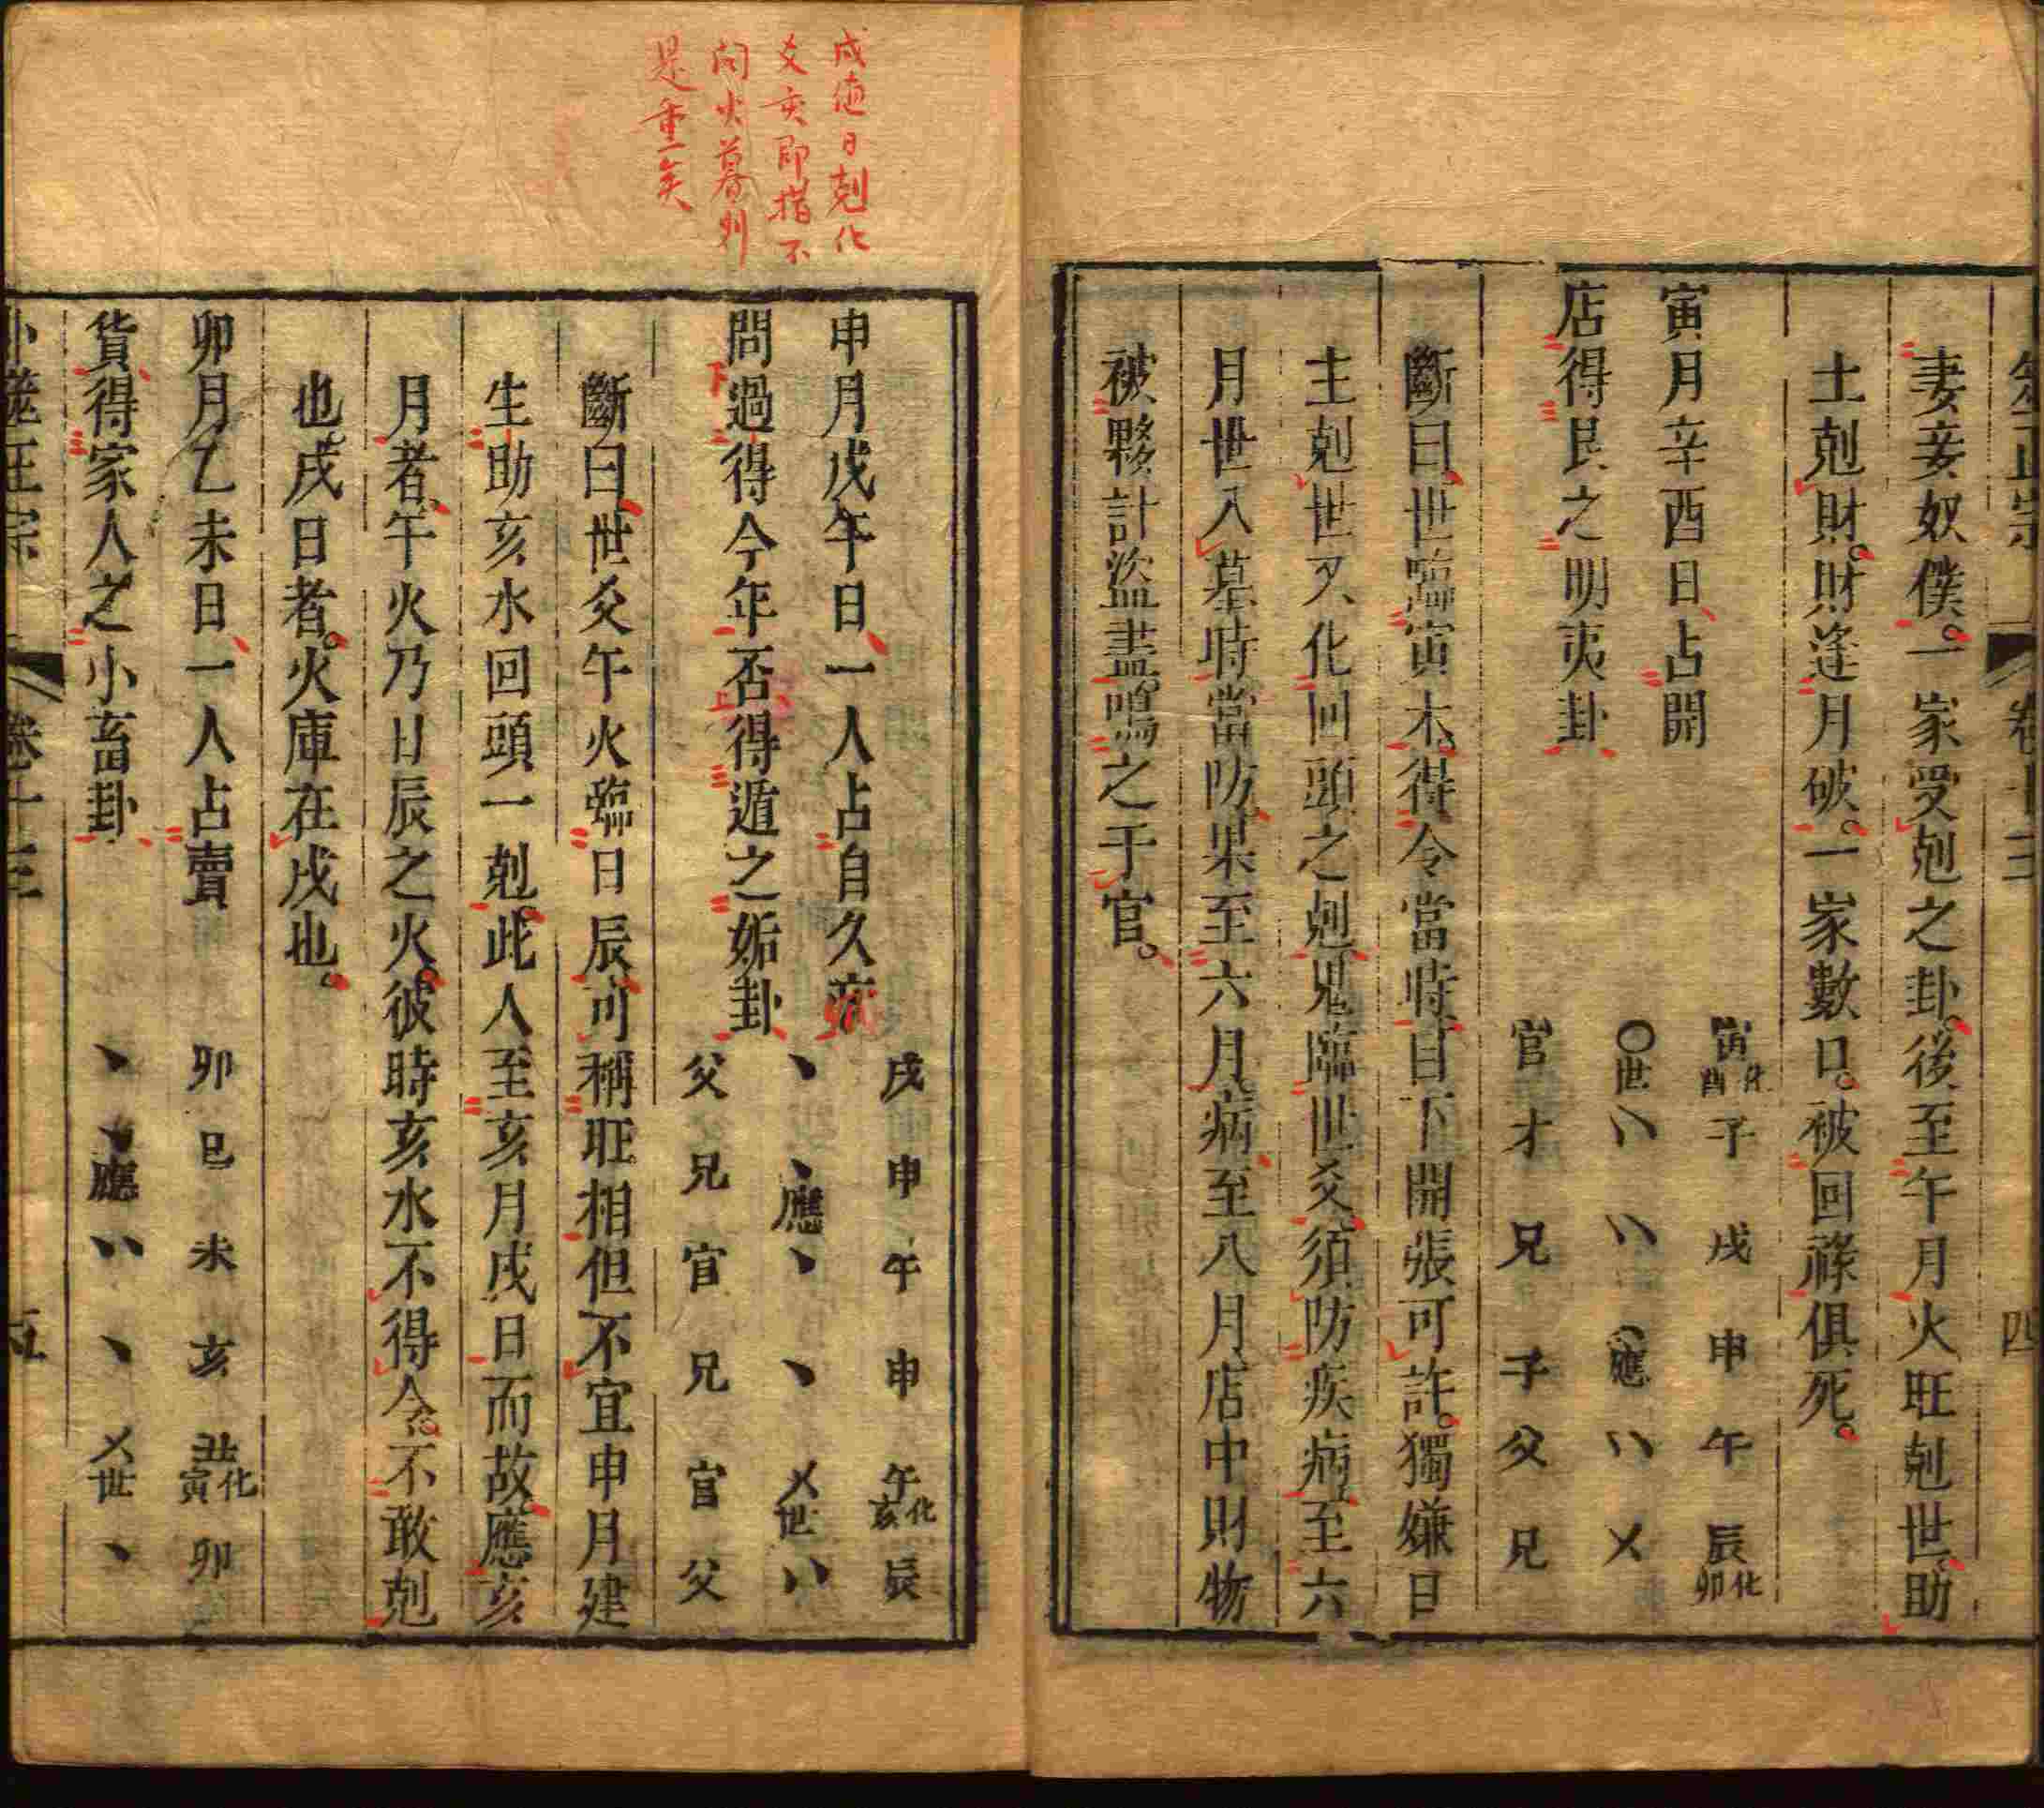 妻妾奴僕。一家受剋之卦。後至午月火旺剋世、助
土剋財。財逢月破。一家數口。被回祿俱死。
寅月辛酉日、占開
店得艮之明夷卦
寅化酉 子 戌 申 午 辰化卯
〇世 〃 〃 〇應 〃 乂
官 才 兄 子 父 兄
斷曰、世臨寅木、得令當時、目下開張可許。獨嫌日
主剋世又化回頭之剋、鬼臨世爻、須防疾病、至六
月世入墓時當防、果至六月、病、至八月店中財物
被夥計盜盡、鳴之于官。
卷十三
四
戌值日剋化
爻亥即指不
問火墓則
是重矣
申月戊午日、一人占自久病
問過得今年否得遁之姤卦
戌 申 午 申 午化亥 辰
、 、應 、 、 乂世 〃
父 兄 官 兄 官 父
斷曰、世爻午火臨日辰、可稱旺相但不宜申月建
生助亥水回頭一剋、此人至亥月戌日而故、應亥
月者、午火乃日辰之火、彼時亥水不得令、不敢剋
也、戌日者。火庫在戌也。
卯月乙未日、一人占賣
貨得家人之小畜卦
卯 巳 未 亥 丑化寅 卯
、 、應 〃 、 乂世 、
卜筮正宗
卷十三
五